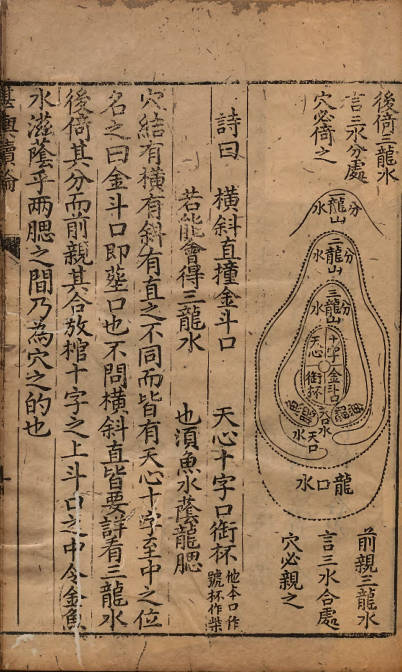 後倚三龍水
言三水分處
穴必倚之
三龍山
分水
三龍山
分水
三龍山
分水
十字
天心
金斗口
啣杯
合水
天口水
龍口水
前親三龍水
言三水合處
穴必親之
詩曰　橫斜直撞金斗口　天心十字口啣杯
他本口作
號杯作柴
若能會得三龍水　也須魚水蔭龍腮
穴結有橫有斜有直之不同而皆有天心十字至中之位
名之曰金斗口即塟口也不問橫斜直皆要詳看三龍水
後倚其分而前親其合放棺十字之上斗口之中令金魚
水滋蔭乎兩腮之間乃為穴之的也